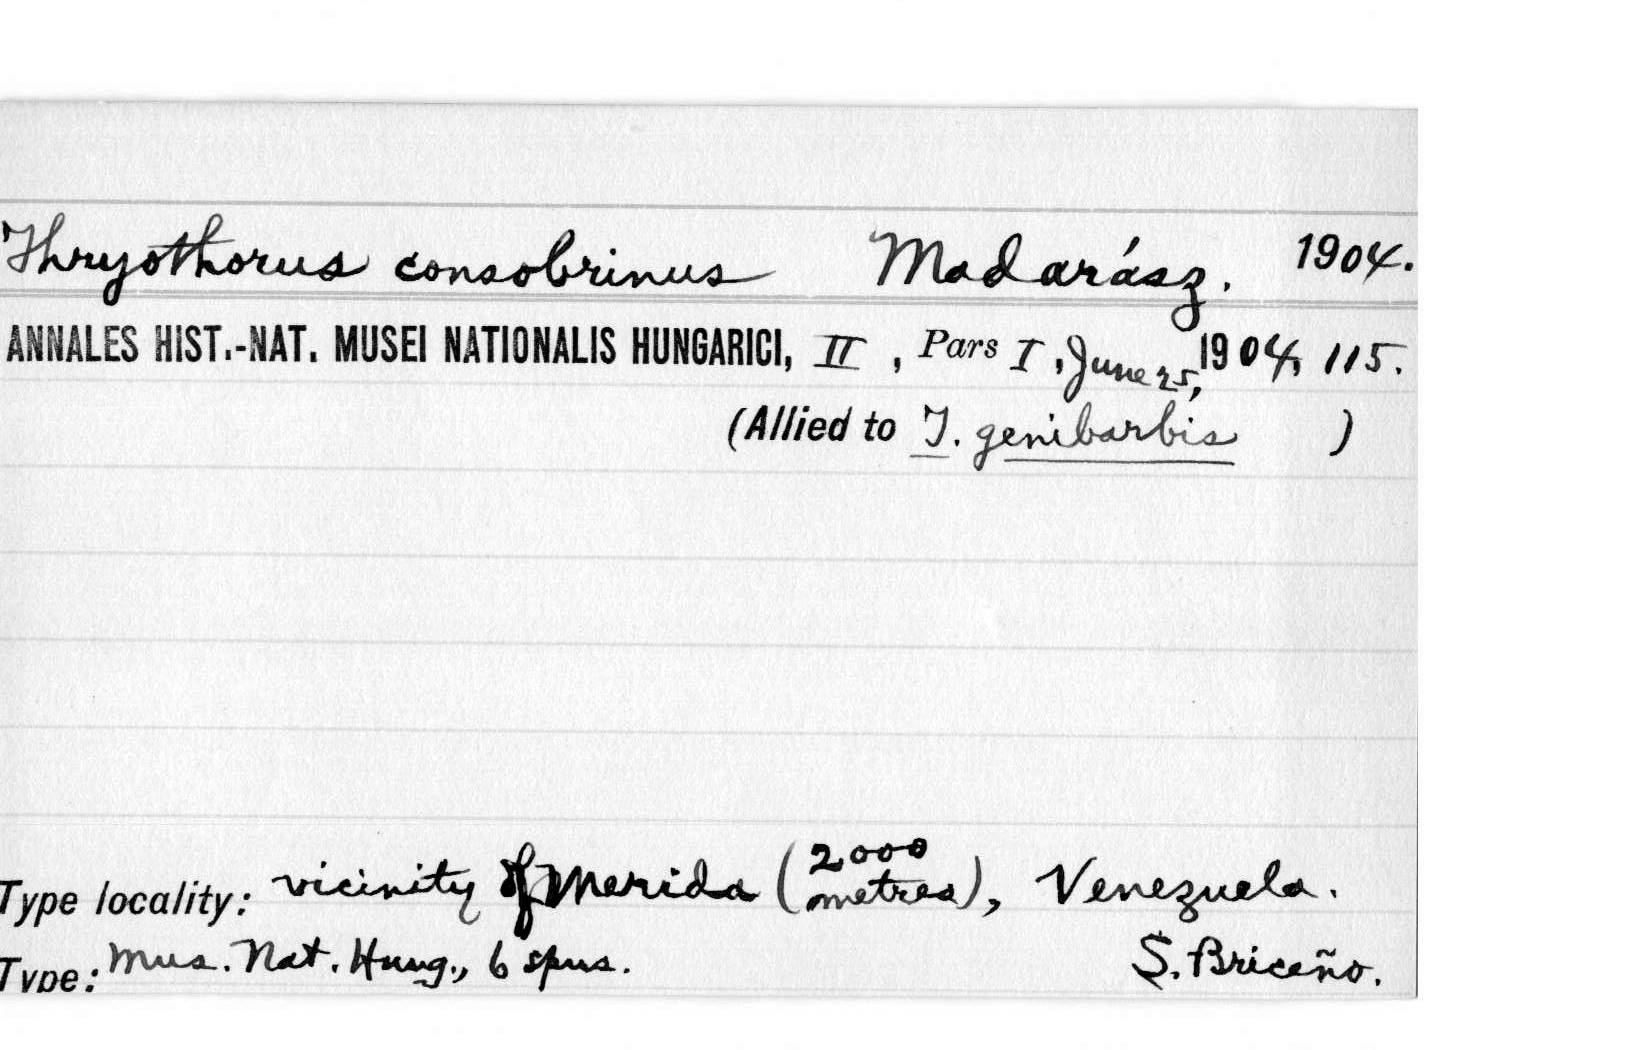 Thryothorus consobrinus Madarász. 1904.
ANNALES HIST.-NAT. MUSEI NATIONALIS HUNGARICI, II, Pars I, June 25, 1904, 115.
(Allied to T. genibarbis )
Type locality: vicinity of Merida (2000 metres), Venezuela.
Type: Mus. Nat. Hung., 6 spms. S. Briceño.